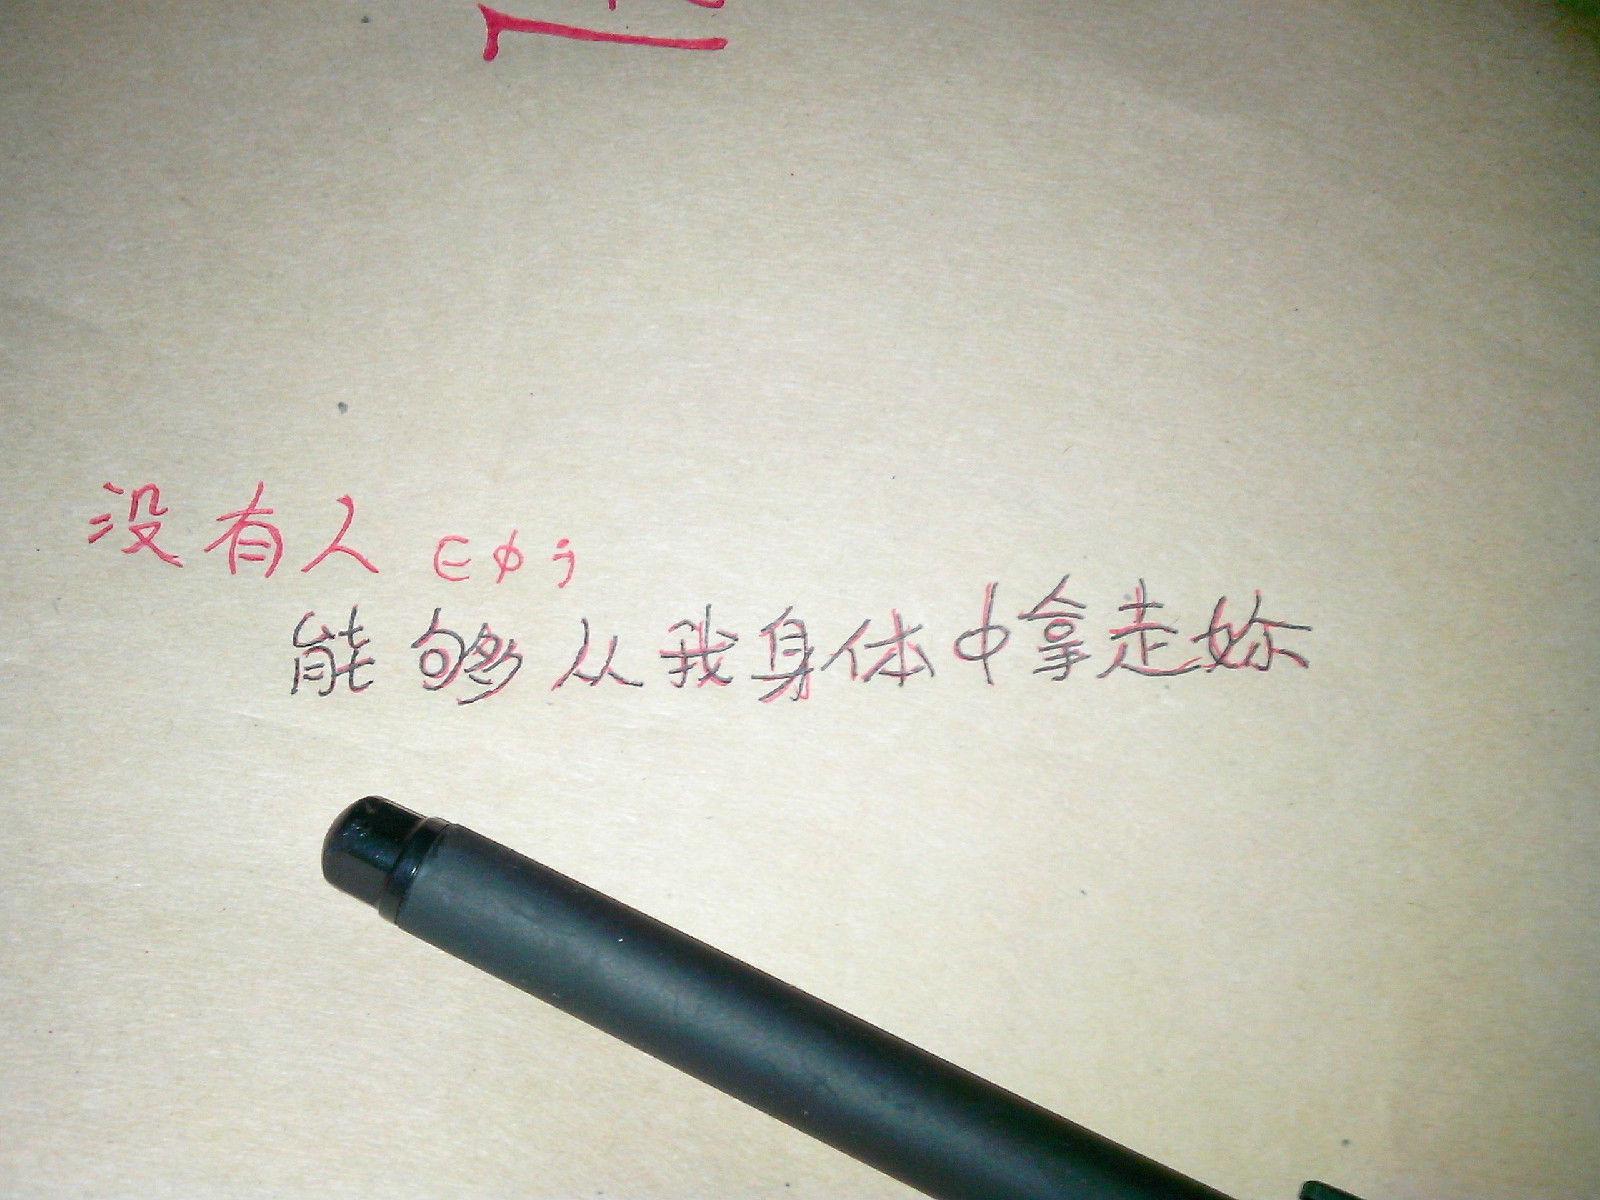 没有人 ∈ φ ;
能够从我身体中拿走妳